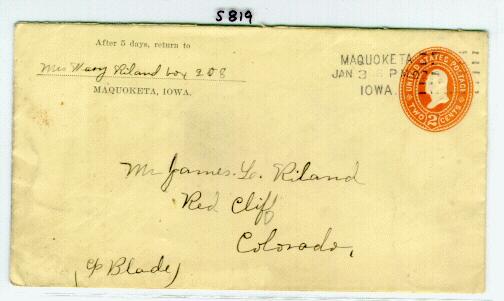 5819
After 5 days, return to
Mrs Mary Riland box 208
MAQUOKETA, IOWA.
MAQUOKETA
JAN 3 PM
IOWA.
UNITED STATES POSTAGE
2
TWO CENTS
Mr James L. Riland
Red Cliff
Colorado,
(c/o Blade)